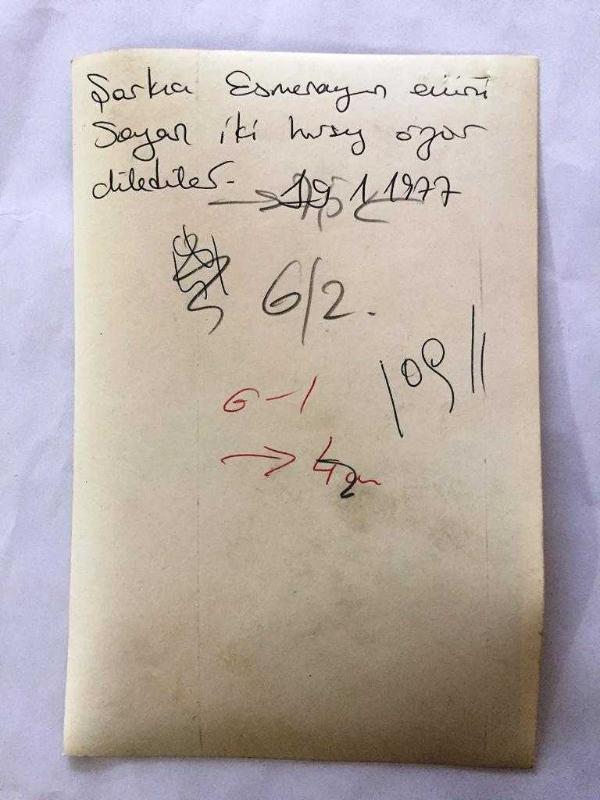 Şarkıcı Esmerayın evini
Soyan iki hırsız özür
dilediler-
19 1 1977
6/2.
109 11
6-1